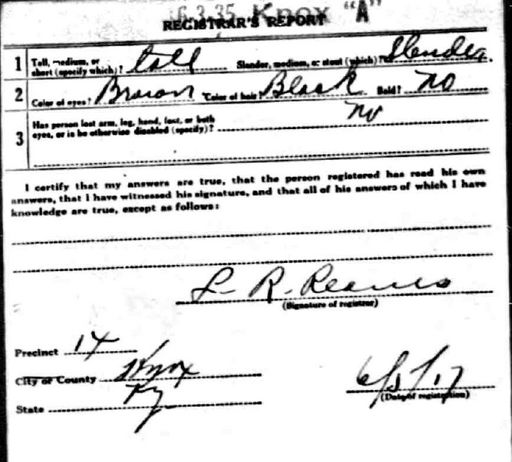 6.3.35. Knox "A"
REGISTRAR'S REPORT
1 Tall, medium, or short (specify which)? tall Slender, medium, or stout (which)? Slender.
2 Color of eyes? Brown Color of hair? Black Bald? No
3 Has person lost arm, leg, hand, foot, or both eyes, or is he otherwise disabled (specify)? No
I certify that my answers are true, that the person registered has read his own
answers, that I have witnessed his signature, and that all of his answers of which I have
knowledge are true, except as follows:
L. R. Reaves
(Signature of registrar)
Precinct 14
City or County Knox
State Ky
6/5/17
(Date of registration)